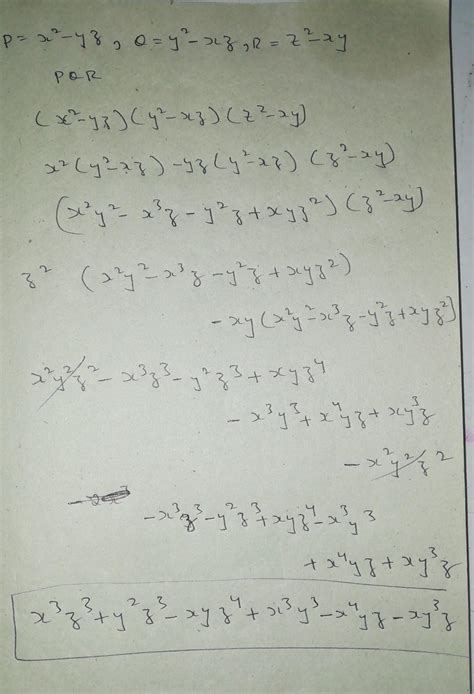 P = x²-yz, Q = y²-xz, R = z²-xy
PQR
(x²-yz)(y²-xz)(z²-xy)
x²(y²-xz) -yz(y²-xz) (z²-xy)
(x²y² - x³z - y²z + xyz²) (z²-xy)
z² (x²y² - x³z - y²z + xyz²)
- xy (x²y² - x³z - y²z + xyz²)
x²y²z² - x³z³ - y²z³ + xyz⁴
- x³y³ + x⁴yz + xy³z
- x²y²z²
-x³z³ - y²z³ + xyz⁴ - x³y³
+ x⁴yz + xy³z
x³z³ + y²z³ - xyz⁴ + x³y³ - x⁴yz - xy³z